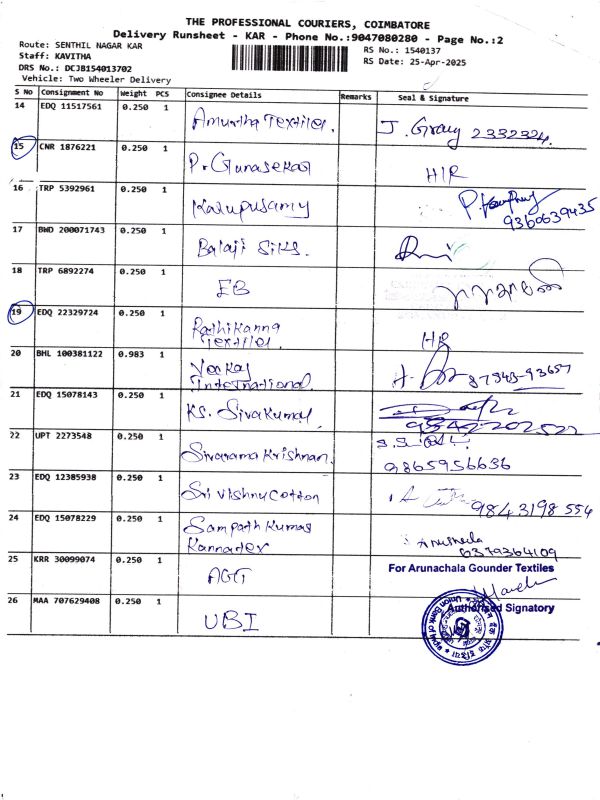 THE PROFESSIONAL COURIERS, COIMBATORE
Delivery Runsheet - KAR - Phone No.:9047080280 - Page No.:2
Route: SENTHIL NAGAR KAR
RS No.: 1540137
Staff: KAVITHA
RS Date: 25-Apr-2025
DRS No.: DCJB154013702
Vehicle: Two Wheeler Delivery
S No Consignment No Weight PCS Consignee Details Remarks Seal & Signature
14 EDQ 11517561 0.250 1 Amurtha Textiles. J. Grauy 2332324.
15 CNR 1876221 0.250 1 P. Gunasekar HR
16 TRP 5392961 0.250 1 Karupusamy 9360639435
17 BWD 200071743 0.250 1 Balaji Silks.
18 TRP 6892274 0.250 1 EB
19 EDQ 22329724 0.250 1 Rathikanna
Textiles. HR
20 BHL 100381122 0.983 1
International 87543-93657
21 EDQ 15078143 0.250 1 KS. Sivakumar
22 UPT 2273548 0.250 1 Sivarama Krishnan. 9865956636
23 EDQ 12385938 0.250 1 Sri Vishnu Cotton 9843198554
24 EDQ 15078229 0.250 1 Sampath Kumar 6379364109
25 KRR 30099074 0.250 1 AGT For Arunachala Gounder Textiles
Authorised Signatory
26 MAA 707629408 0.250 1 UBI
Union Bank of India